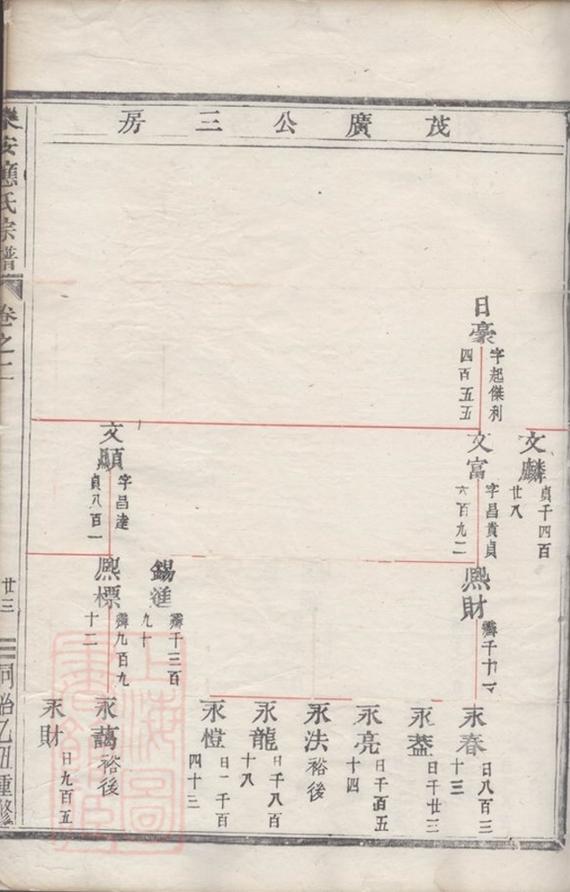 茂廣公三房
文麟
貞千四百
廿八
日豪
字起傑利
四百五五
文富
字昌貴貞
六百九二
熙財
永春
日八百三
十三
永葢
日千廿三
永亮
日千百五
十四
永法
裕後
永龍
日千八百
十八
永愷
日一千百
四十三
錫進
九十
文顯
字昌達
貞八百一
熙標
九百九
十二
永藹
裕後
永財
日九百五
安應氏宗譜
卷之二
廿三
同治乙丑重修